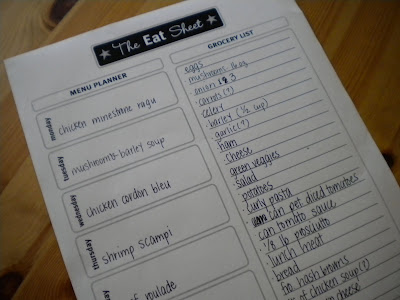 The Eat Sheet
MENU PLANNER
monday
chicken minestone ragu
tuesday
mushroom & barley soup
wednesday
chicken cordon bleu
thursday
shrimp scampi
roulade
GROCERY LIST
eggs
mushrooms
onion 3
carrots (?)
celery
barley (1/2 cup)
garlic (?)
ham
cheese
green veggies
salad
potatoes
curly pasta
can pet. diced tomatoes
can tomato sauce
1/8 lb prosciutto
lunch meat
bread
hash browns
of chicken soup (?)
cheese